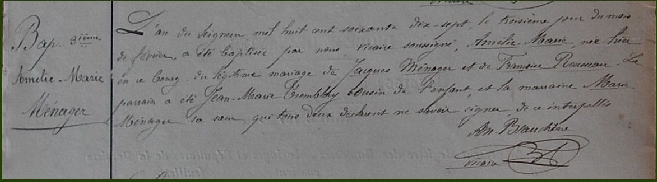 Bap. 3ième
Amélie-Marie
Ménager
L'an du Seigneur mil huit cent soixante dix-sept le troisième jour du mois
de février, a été baptisée par nous vicaire soussigné, Amélie Marie, née hier
en ce bourg du légitime mariage de Jacques Ménager et de Françoise Rousseau. Le
parrain a été Jean-Marie Tremblay cousin de l'enfant et la marraine Marie
Ménager sa sœur, qui tous deux déclarent ne savoir signer de ce interpellés
Vicaire